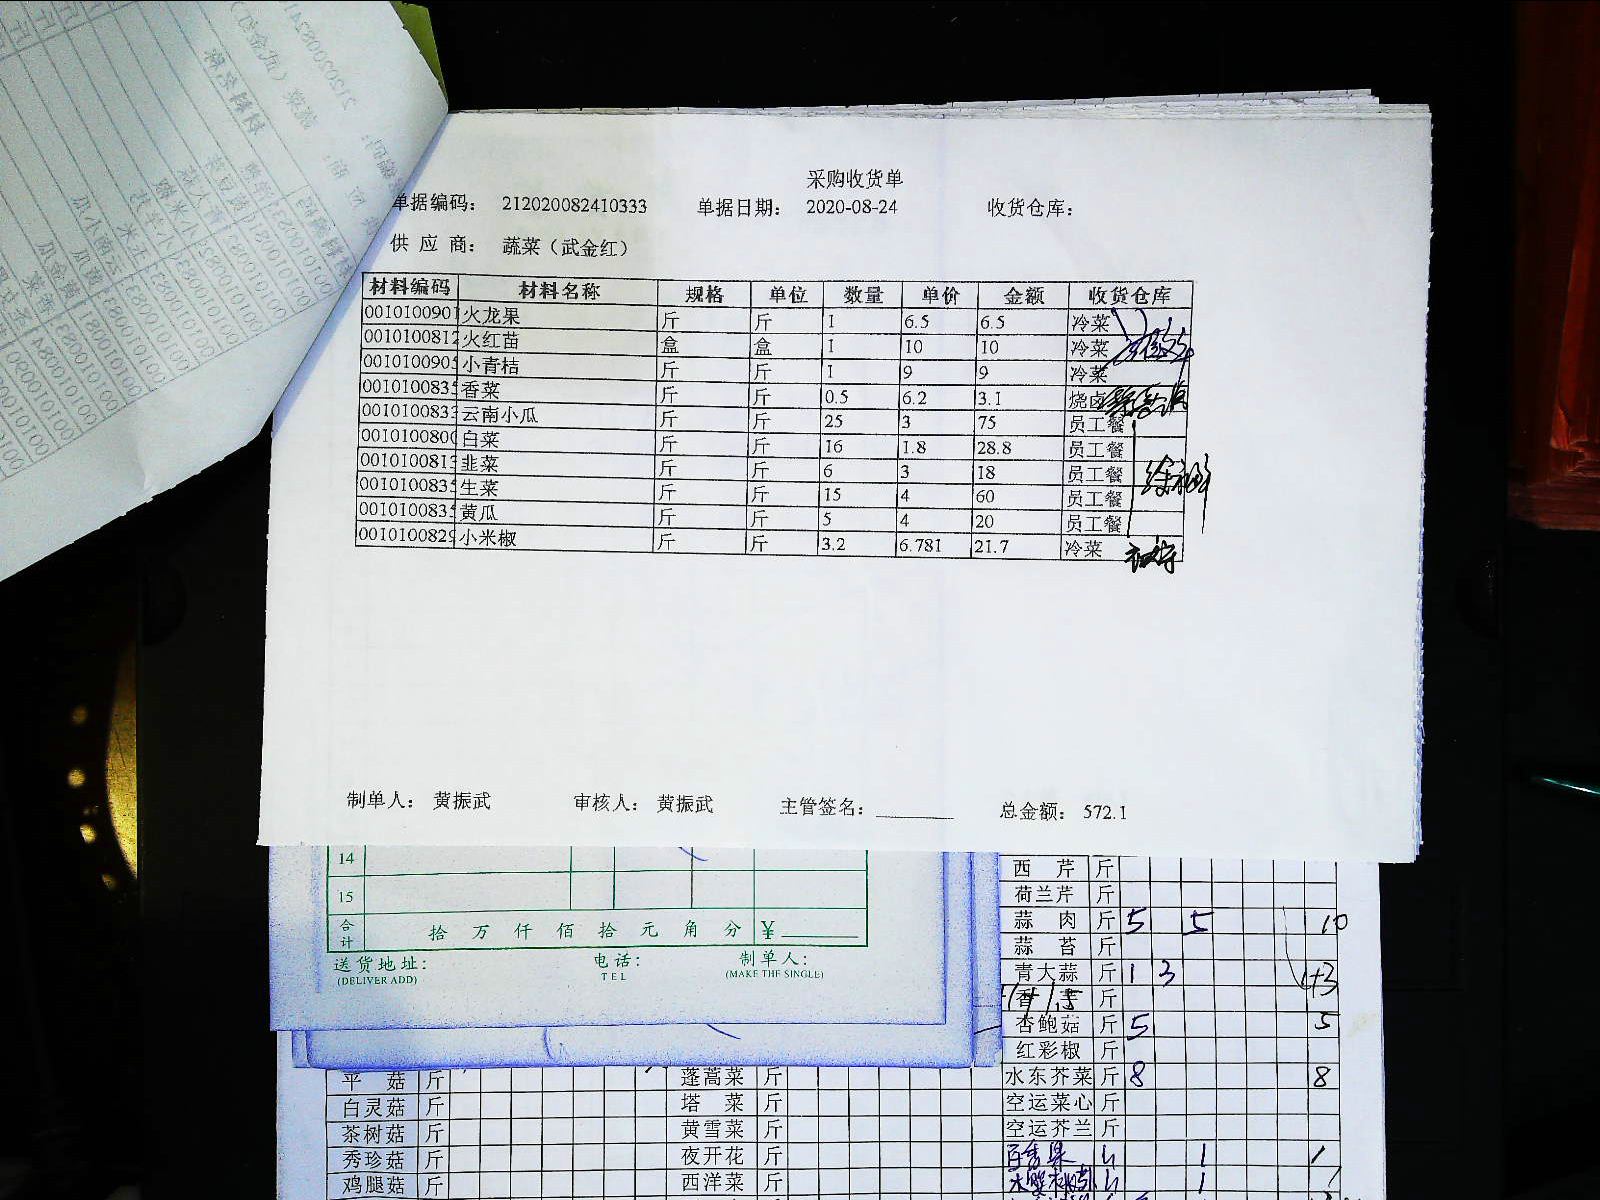 采购收货单
单据编码： 212020082410333 单据日期： 2020-08-24 收货仓库：
供 应 商： 蔬菜（武金红）
材料编码 材料名称 规格 单位 数量 单价 金额 收货仓库
0010100901 火龙果 斤 斤 1 6.5 6.5 冷菜
001010081 火红苗 盒 盒 1 10 10 冷菜
001010090 小青桔 斤 斤 1 9 9 冷菜
001010083 香菜 斤 斤 0.5 6.2 3.1 烧卤
001010083 云南小瓜 斤 斤 25 3 75 员工餐
001010080 白菜 斤 斤 16 1.8 28.8 员工餐
001010081 韭菜 斤 斤 6 3 18 员工餐
001010083 生菜 斤 斤 15 4 60 员工餐
001010083 黄瓜 斤 斤 5 4 20 员工餐
001010082 小米椒 斤 斤 3.2 6.781 21.7 冷菜
制单人： 黄振武 审核人： 黄振武 主管签名： 总金额： 572.1
14
15
合计 拾 万 仟 佰 拾 元 角 分 ¥
送货地址： 电话： 制单人：
(DELIVER ADD) TEL (MAKE THE SINGLE)
西 芹 斤
荷兰芹 斤
蒜 肉 斤 5 5 10
蒜 苔 斤
青大蒜 斤 1 3 1+3
斤
杏鲍菇 斤 5 5
红彩椒 斤
平 菇 斤 蓬蒿菜 斤 水东芥菜 斤 8 8
白灵菇 斤 塔 菜 斤 空运菜心 斤
茶树菇 斤 黄雪菜 斤 空运芥兰 斤
秀珍菇 斤 夜开花 斤 1 1
鸡腿菇 斤 西洋菜 斤 1 1